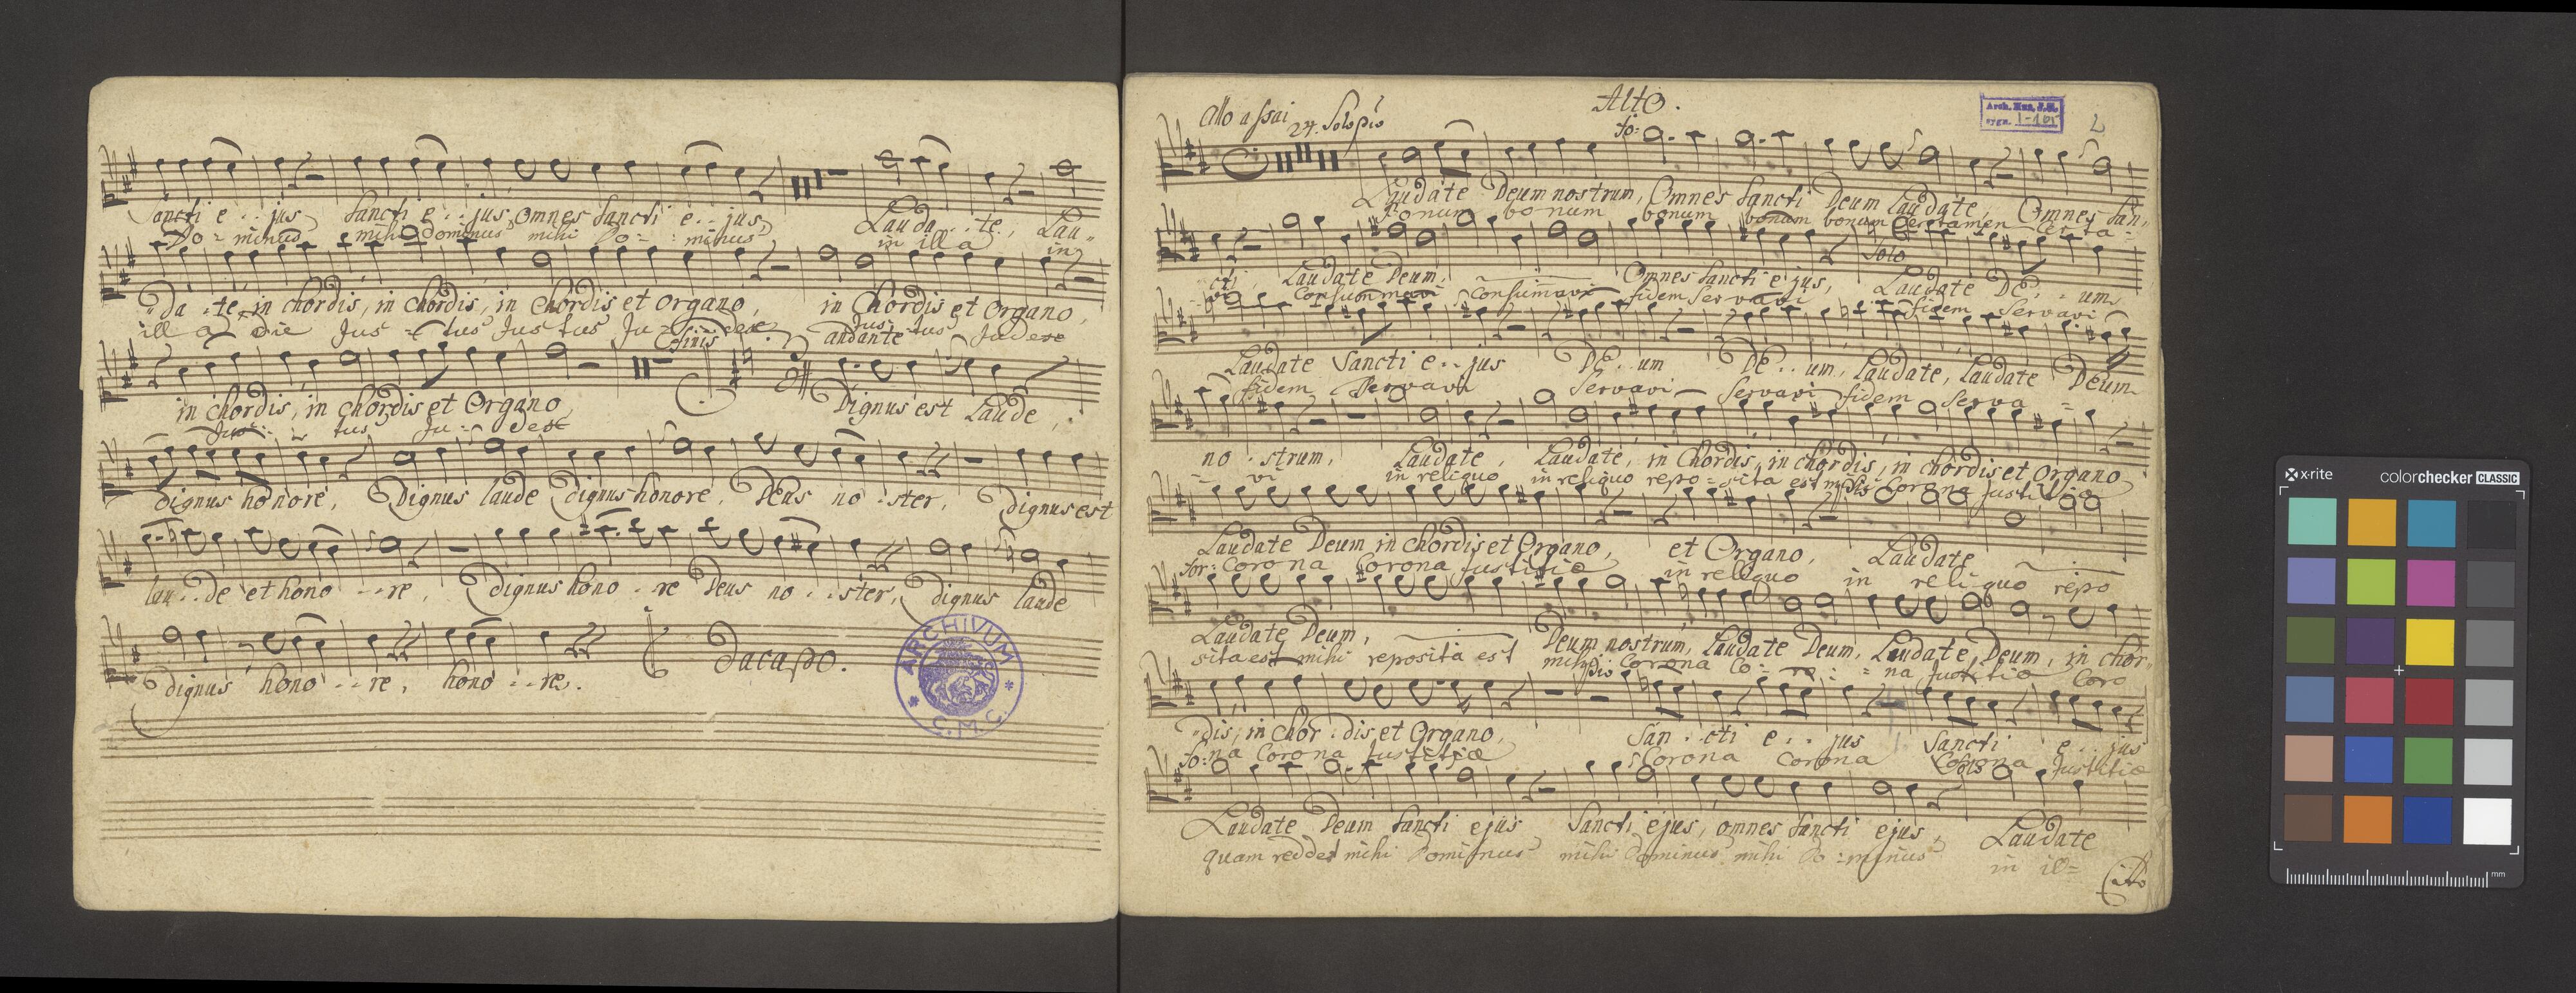 Sancti e . . jus Sancti e . . jus, Omnes Sancti e . . jus, Lauda . . te, Lau
Do = minus mihi Dominus mihi Do = minus in illa in
Da . te, in chordis, in chordis, in chordis et organo, in chordis et organo,
illa Die Jus = tus Justus Ju dex Jus tus Judex
Finis andante
in chordis, in chordis et Organo Dignus est laude,
Jus tus Ju = dex
dignus honore, Dignus laude dignus honore, Deus no . ster, dignus est
lau . . de et hono . . re, dignus hono . . re Deus no . . ster, dignus laude
dignus hono . . re, hono . . re. Dacapo.
ARCHIVUM
C.M.C.
Alto.
Allo assai 24. Solo pio
fo:
Arch. Kan. J.G.
sygn. I-165
Laudate Deum nostrum, Omnes Sancti Deum Laudate, Omnes San,
Bonum bonum bonum bonum bonum Certamen Certa =
Solo
cti, Laudate Deum, Omnes Sancti ejus, Laudate De . . um
vi Consummavi Consumavi fidem Servavi fidem Servavi
Laudate Sancti e . . jus De . . um De . . um, Laudate, Laudate Deum
fidem Servavi Servavi Servavi fidem Serva =
no . strum, Laudate, Laudate, in Chordis, in chordis, in chordis et Organo
= vi in reliquo in reliquo repo = sita est mihi Corona Justitiæ
Laudate Deum in chordis et Organo, et Organo, Laudate
for: Corona Corona Justitiæ in reliquo in reliquo repo
Laudate Deum, Deum nostrum, Laudate Deum, Laudate Deum, in chor,
sita est mihi reposita est mihi Corona Co = ro = na Justitiæ Coro
pio
dis, in chor . dis et Organo, San . . cti e . . jus Sancti e . . jus
fo: na Corona Justitiæ Corona Corona Corona Justitiæ
Laudate Deum Sancti ejus Sancti ejus, omnes Sancti ejus, Laudate
quam reddet mihi Dominus mihi Dominus mihi Do = minus in ill=
Cito
x·rite colorchecker CLASSIC
mm